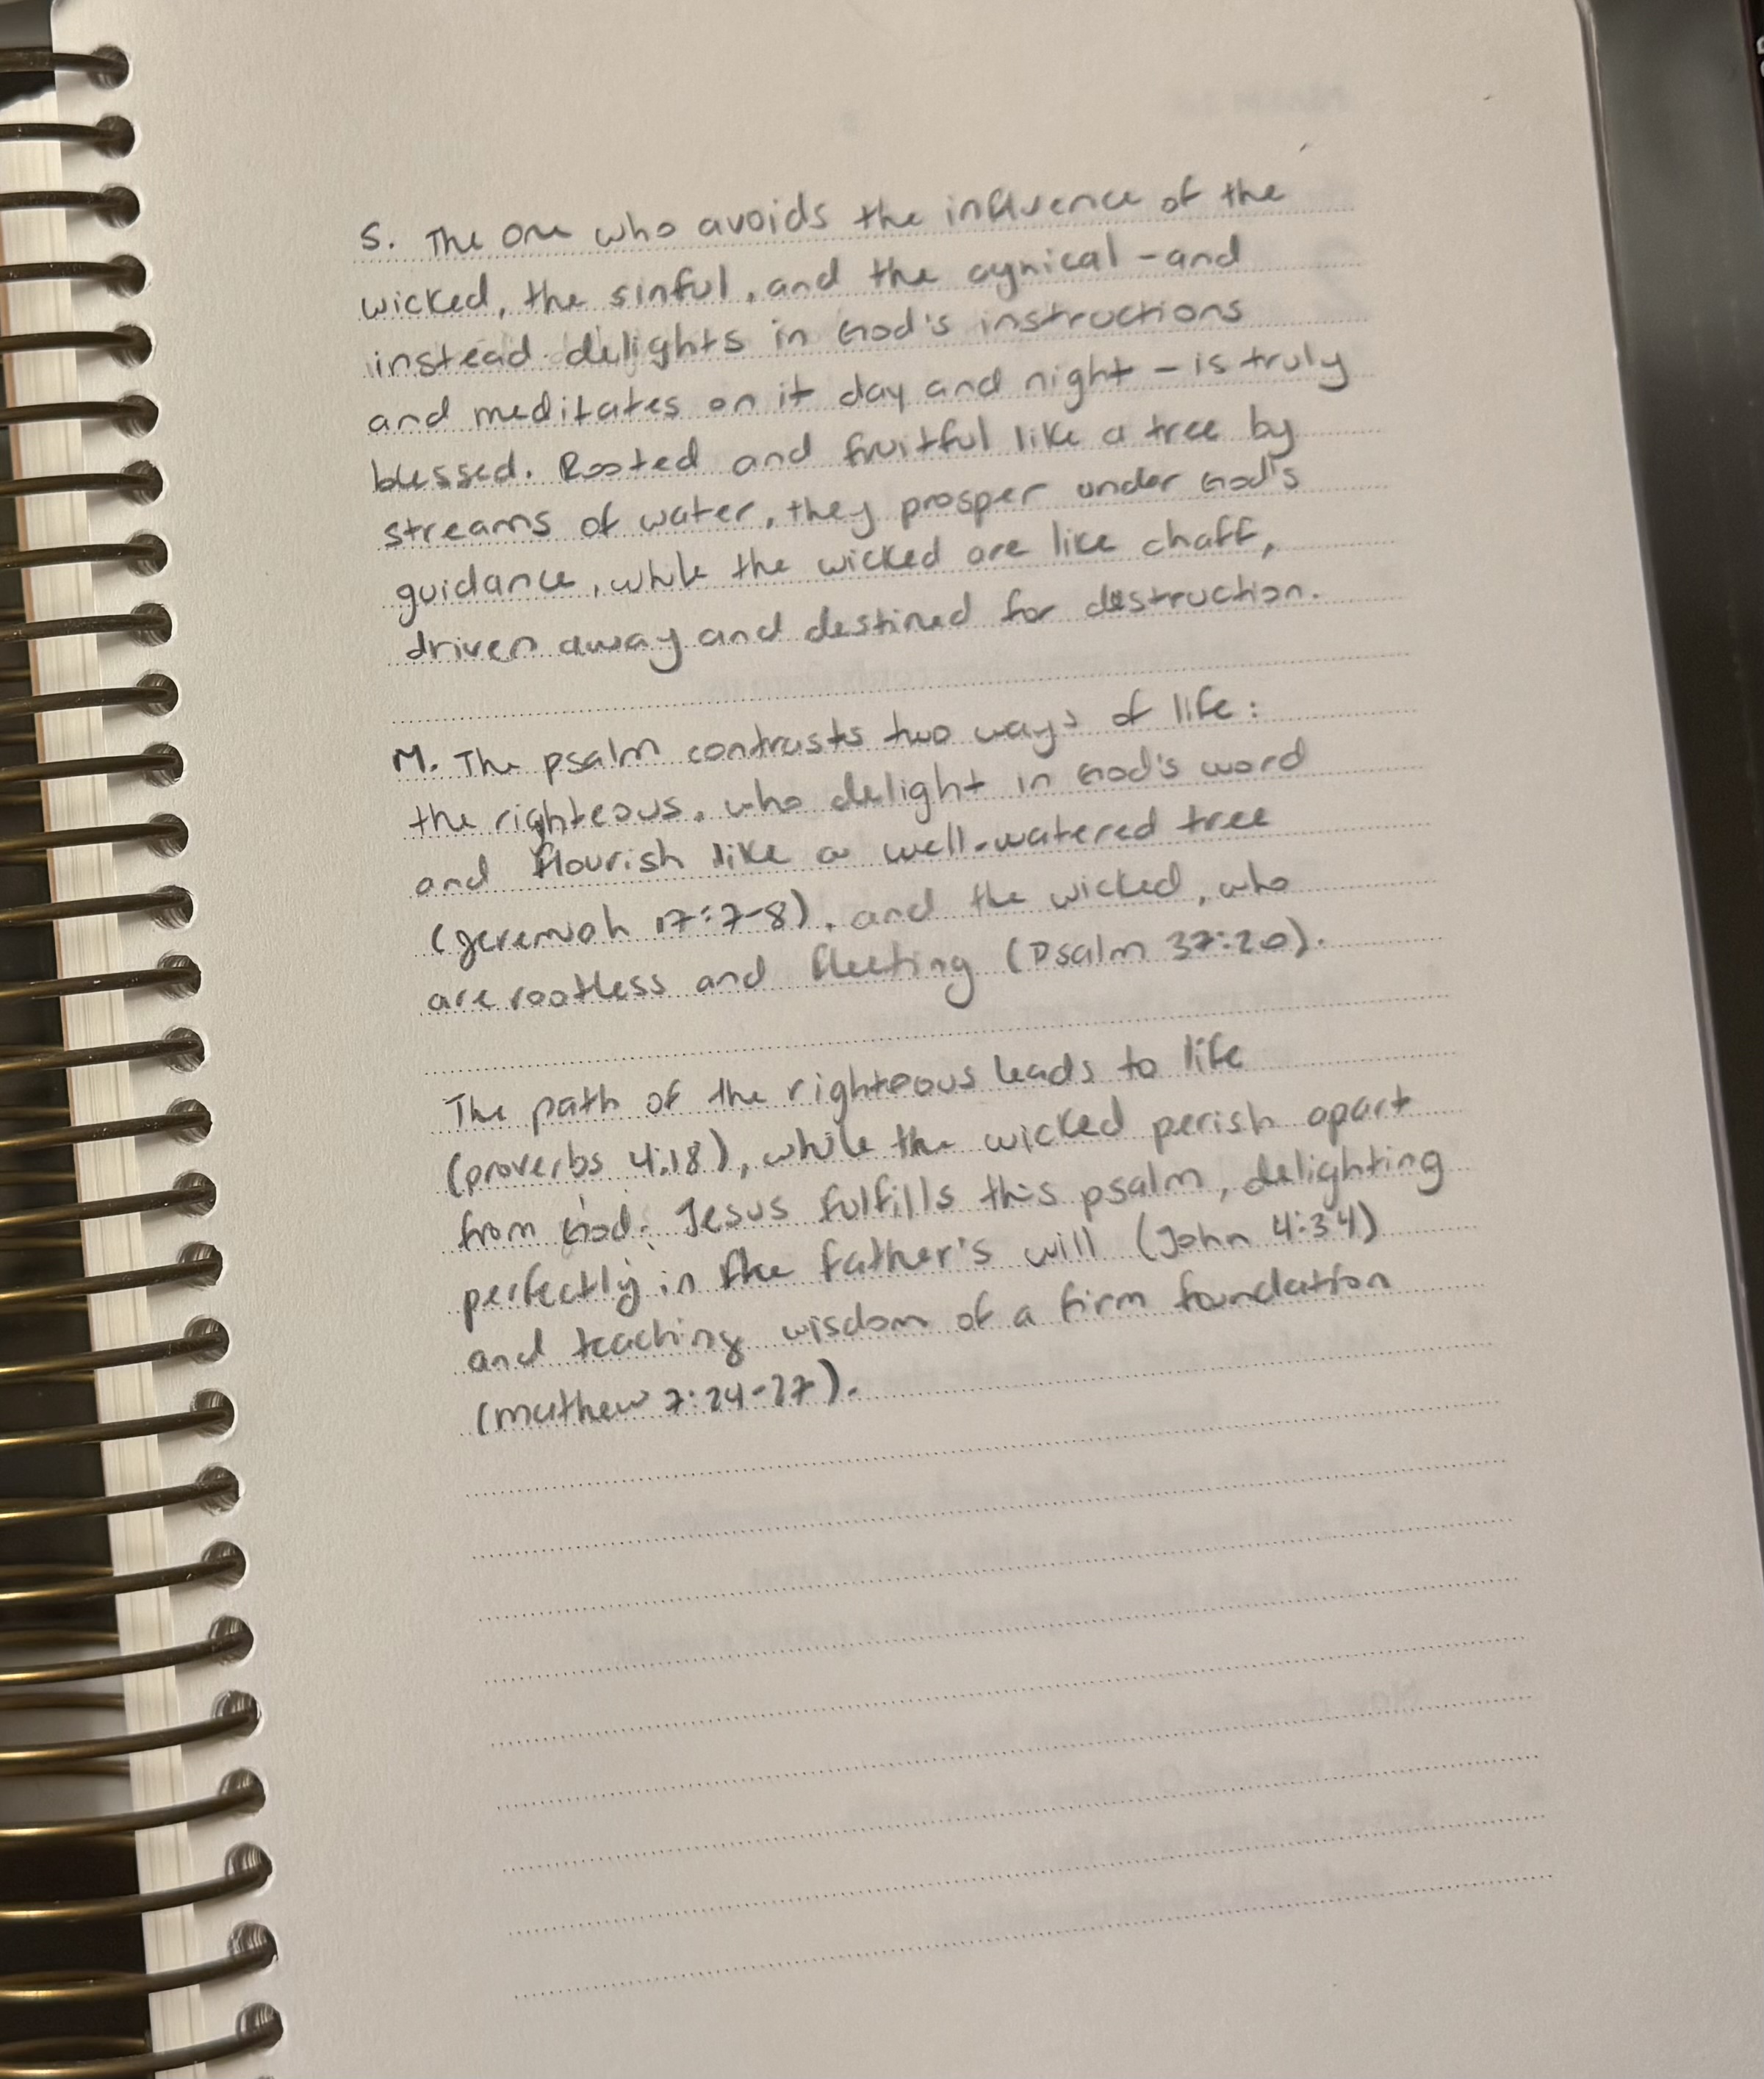 S. The one who avoids the influence of the
wicked, the sinful, and the cynical - and
instead delights in God's instructions
and meditates on it day and night - is truly
blessed. Rooted and fruitful like a tree by
streams of water, they prosper under God's
guidance, while the wicked are like chaff,
driven away and destined for destruction.
M. The psalm contrasts two ways of life:
the righteous, who delight in God's word
and flourish like a well-watered tree
(Jeremiah 17:7-8), and the wicked, who
are rootless and fleeting (Psalm 37:20).
The path of the righteous leads to life
(proverbs 4:18), while the wicked perish apart
from God. Jesus fulfills this psalm, delighting
perfectly in the father's will (John 4:34)
and teaching wisdom of a firm foundation
(mathew 7:24-27).